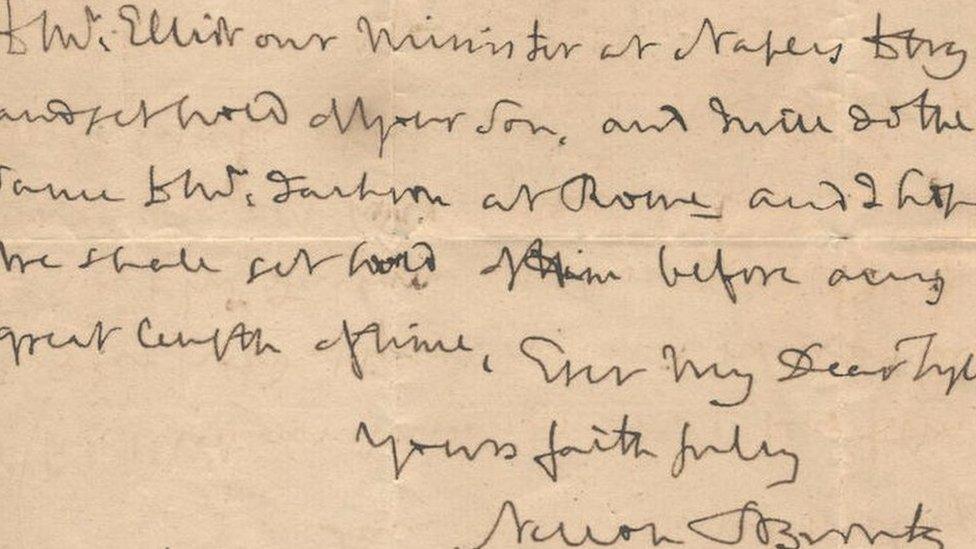 to Mr. Elliot our Minister at Naples to try
and get hold of your Son, and I will do the
same to Mr. Jackson at Rome and I hope
we shall get hold of him before any
great length of time, Ever My Dear Tyl
yours faithfully
Nelson & Bronte